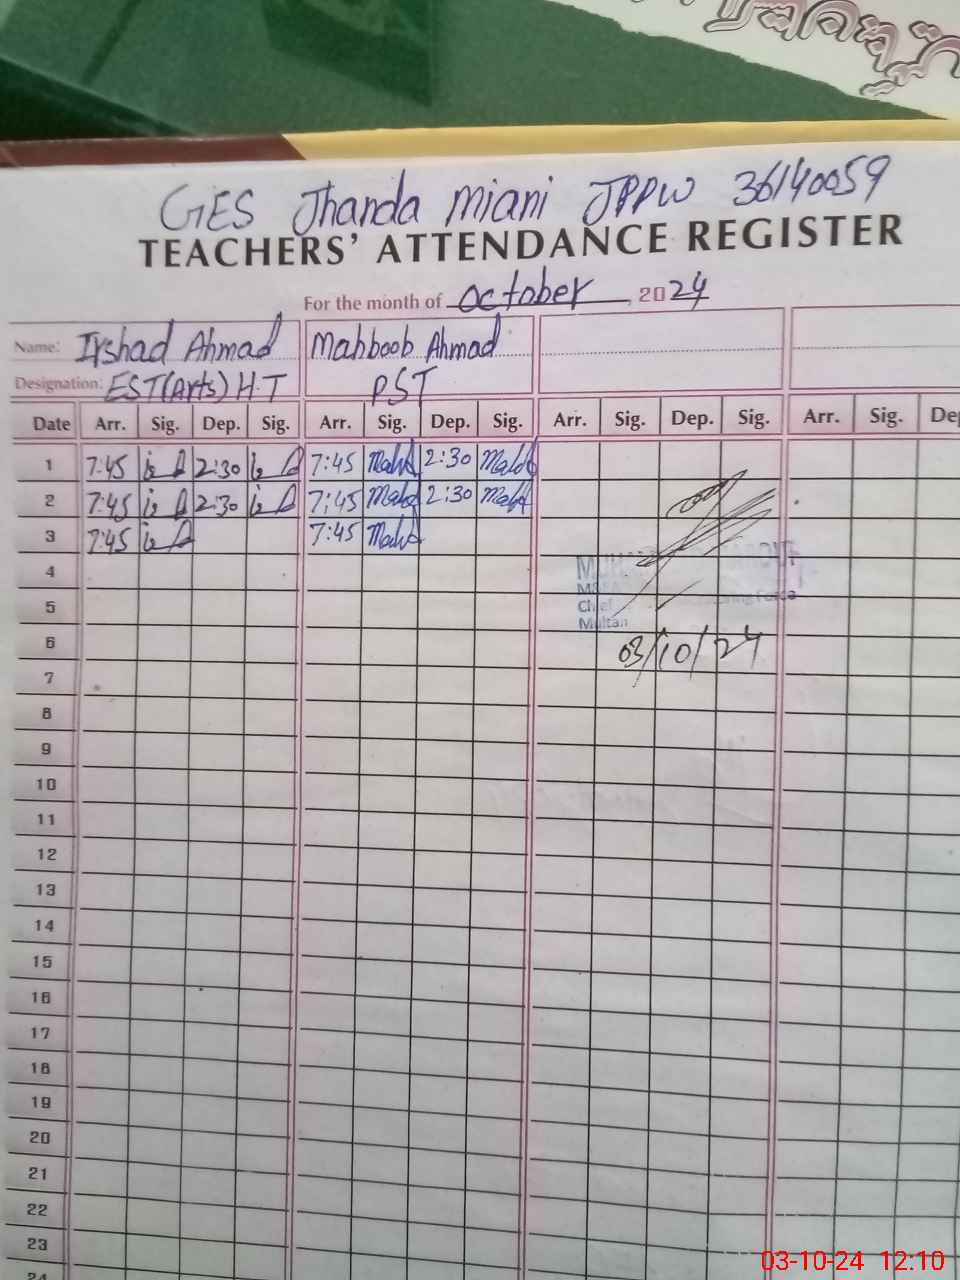 GES Jhanda Miani JPPW 36140059
TEACHERS' ATTENDANCE REGISTER
For the month of October, 2024
Name: Irshad Ahmad Mahboob Ahmad
Designation: EST(Arts) H.T PST
Date Arr. Sig. Dep. Sig. Arr. Sig. Dep. Sig. Arr. Sig. Dep. Sig. Arr. Sig. Dep
1 7:45 2:30 7:45 2:30
2 7:45 2:30 7:45 2:30
3 7:45 7:45
4
5
Chief
Multan
6
03/10/24
7
8
9
10
11
12
13
14
15
16
17
18
19
20
21
22
23
24
03-10-24 12:10